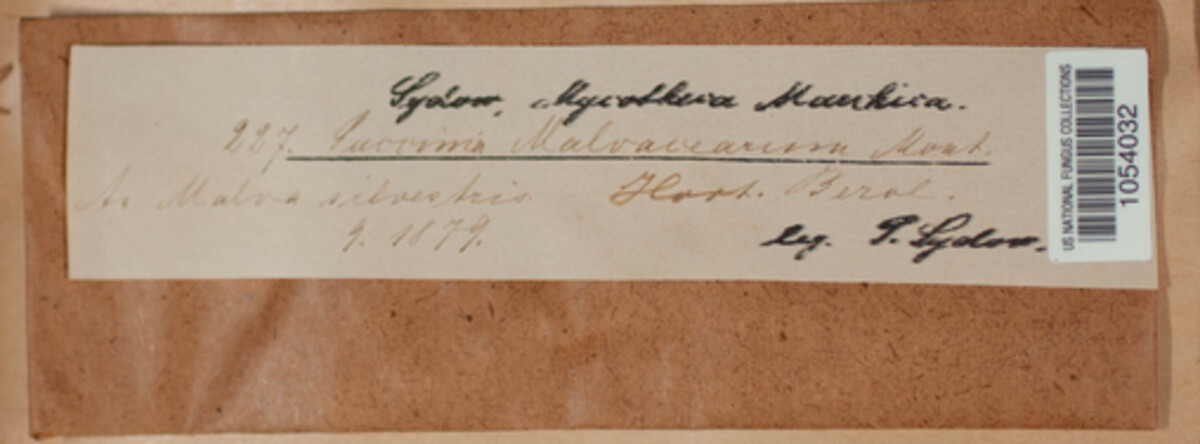 Sydow, Mycotheca Marchica.
227. Puccinia Malvacearum Mont.
An Malva silvestris Hort. Berol.
9. 1879. leg. P. Sydow.
US NATIONAL FUNGUS COLLECTIONS
1054032